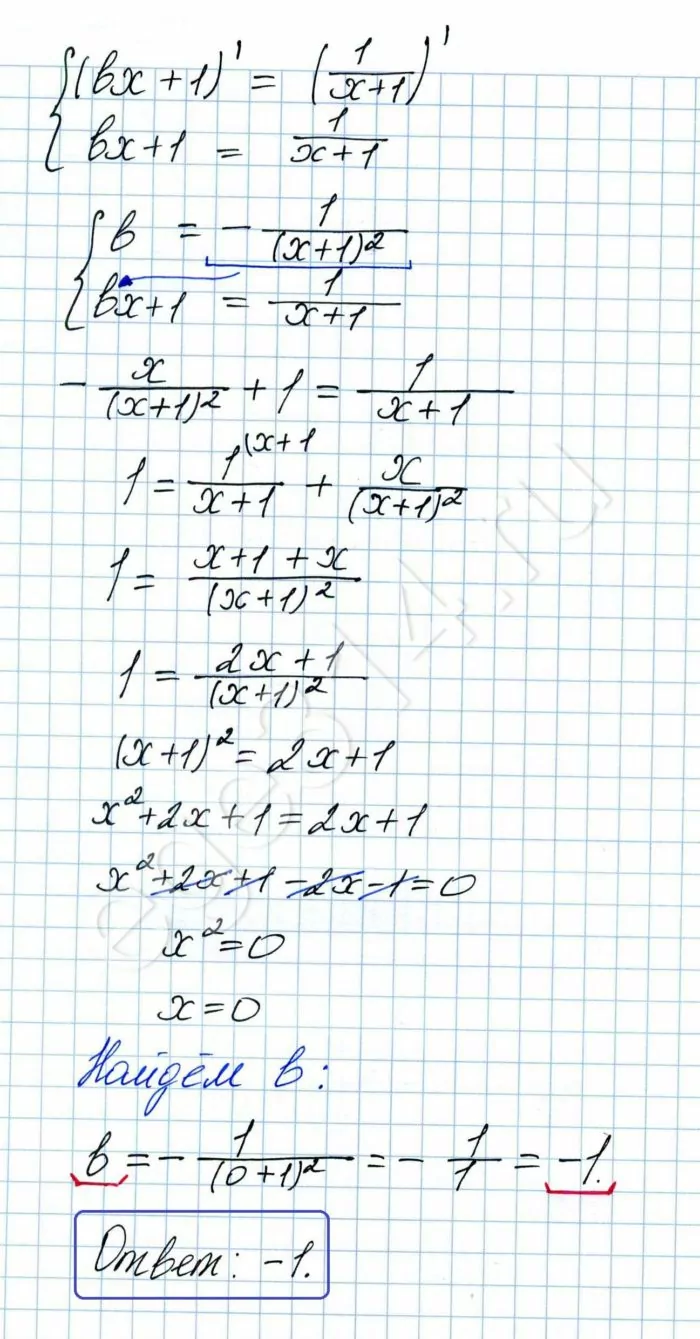 (bx+1)' = (1/(x+1))'
bx+1 = 1/(x+1)
b = -1/(x+1)²
bx+1 = 1/(x+1)
-x/(x+1)² + 1 = 1/(x+1)
1 = 1^(x+1/(x+1) + x/(x+1)²
1 = (x+1+x)/(x+1)²
1 = (2x+1)/(x+1)²
(x+1)² = 2x+1
x²+2x+1 = 2x+1
x²+2x+1-2x-1=0
x²=0
x=0
Найдём b:
b = -1/(0+1)² = -1/1 = -1.
Ответ: -1.